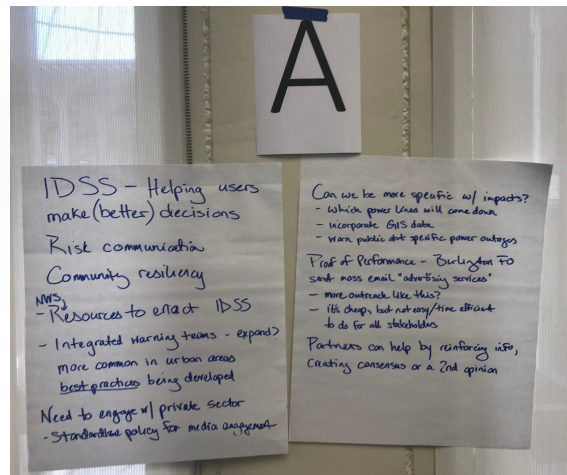 A
IDSS - Helping users
make (better) decisions
Risk communication
Community resiliency
NWS
- Resources to enact IDSS
- Integrated warning teams - expand?
more common in urban areas
best practices being developed
Need to engage w/ private sector
- Standardize policy for media engagement
Can we be more specific w/ impacts?
- Which power lines will come down
- incorporate GIS data
- Warn public abt specific power outages
Proof of Performance - Burlington FO
sent mass email "advertising services"
- more outreach like this?
- it's cheap, but not easy/time efficient
to do for all stakeholders
Partners can help by reinforcing info,
Creating consensus or a 2nd opinion